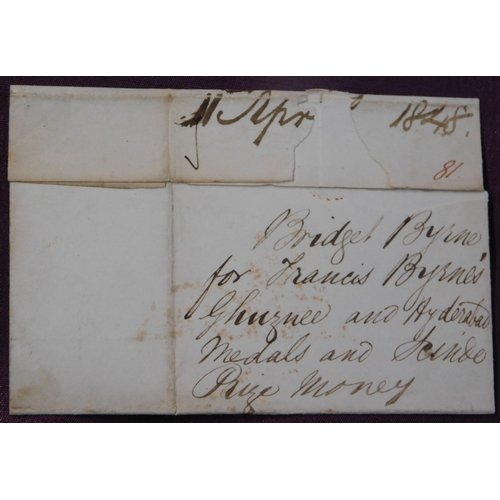 11 Apr 1848.
81
Bridget Byrne
for Francis Byrne's
Ghuznee and Hyderabad
Medals and Scinde
Prize Money